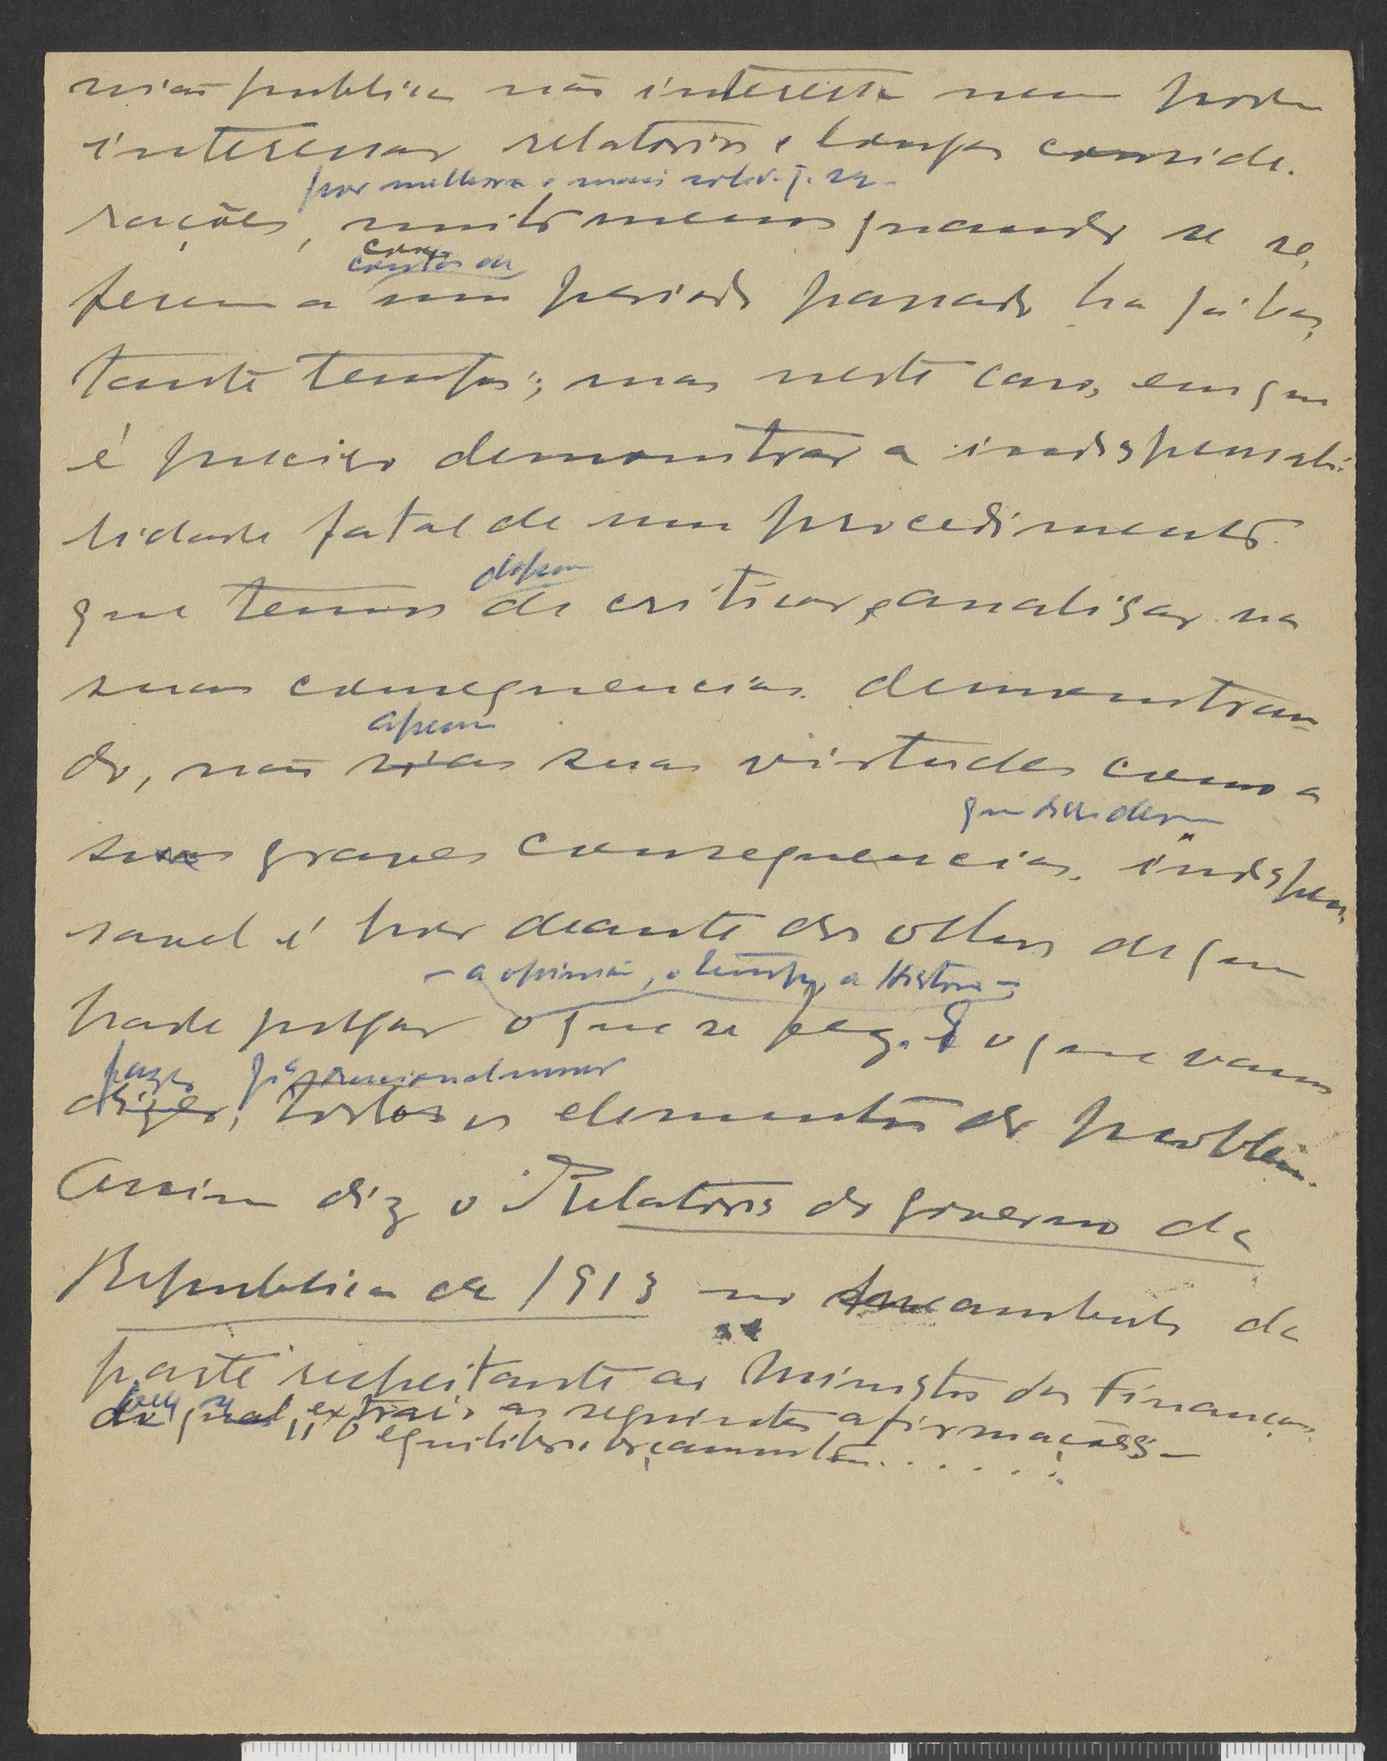 nião publica não interessa nem pode
interessar relatorios e longas conside-
por melhores e mais
rações, muito menos quando se re-
contos de
ferem a um periodo passado ha já bas-
tante tempo; mas neste caso, em que
é preciso demonstrar a indispensabi-
lidade fatal de um procedimento
depois
que temos de criticar, e analisar nas
suas consequencias demonstran-
apenas
do, não as suas virtudes como as
que d'elle
suas graves consequencias, indispen-
savel é pôr deante dos olhos de quem
- a opinião, o tempo, a Historia -
hade julgar o que se fez e o que vamos
fazer já
dizer, todos os elementos do problema.
Assim diz o Relatorio do governo da
Republica de 1913 no da
parte respeitante ao Ministro das Finanças
do qual extraio as seguintes afirmações -
"O equilibrio orçamental . . . . . .